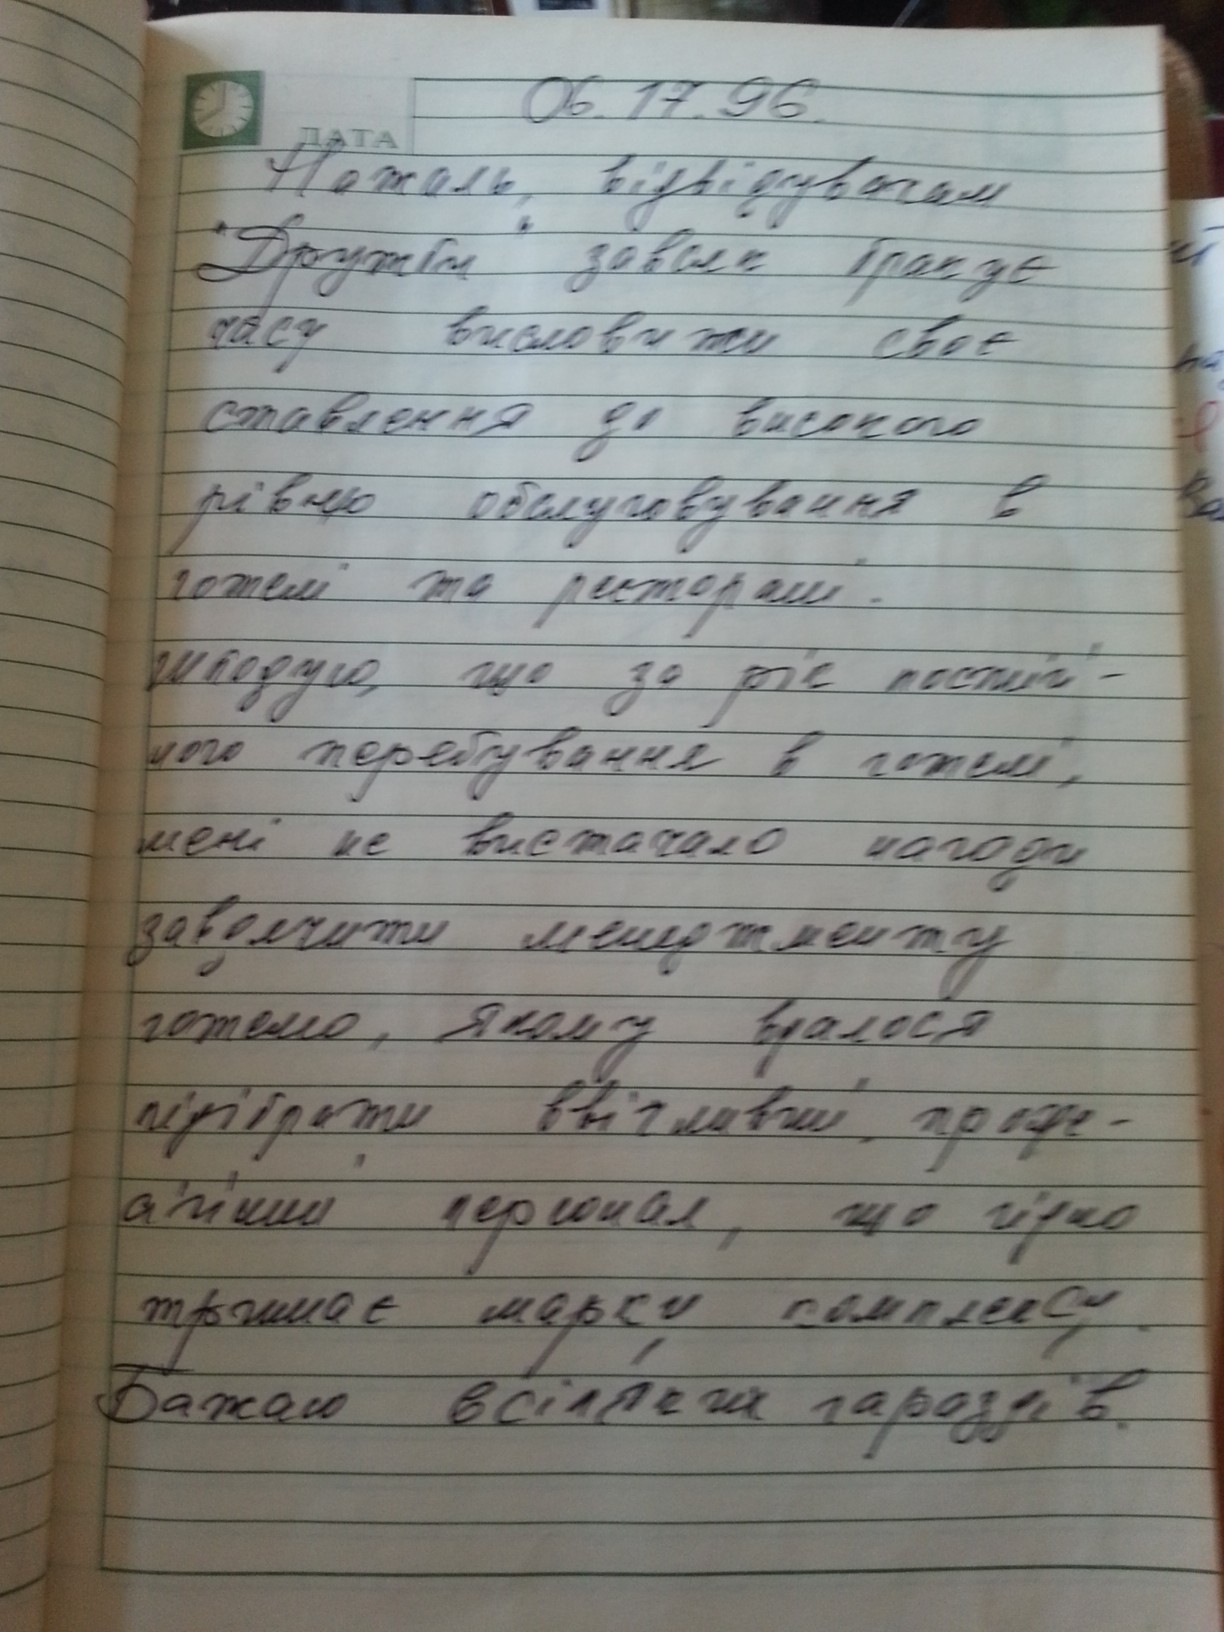 06.17.96.
ДАТА
На жаль, відвідувачам
"Дружби" завжди бракує
часу висловити своє
ставлення до високого
рівню обслуговування в
готелі та ресторані.
шкодую, що за рік постій-
ного перебування в готелі,
мені не вистачало нагоди
завдячити менеджменту
готелю, якому вдалося
підібрати ввічливий, профе-
сійний персонал, що гідно
тримає марку комплексу.
Бажаю всіляких гараздів.